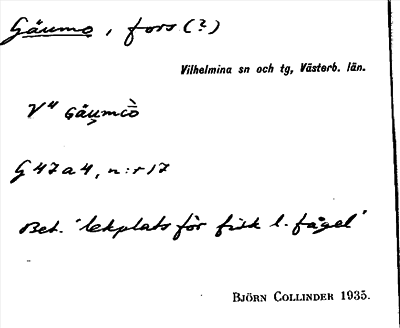 Gäumo, fors (?)
Vilhelmina sn och tg, Västerb. län.
V⁴ Gäu̯mɔ̀
G 47 a 4, n:r 17
Bet. 'lekplats för fisk l. fågel'
BJÖRN COLLINDER 1935.